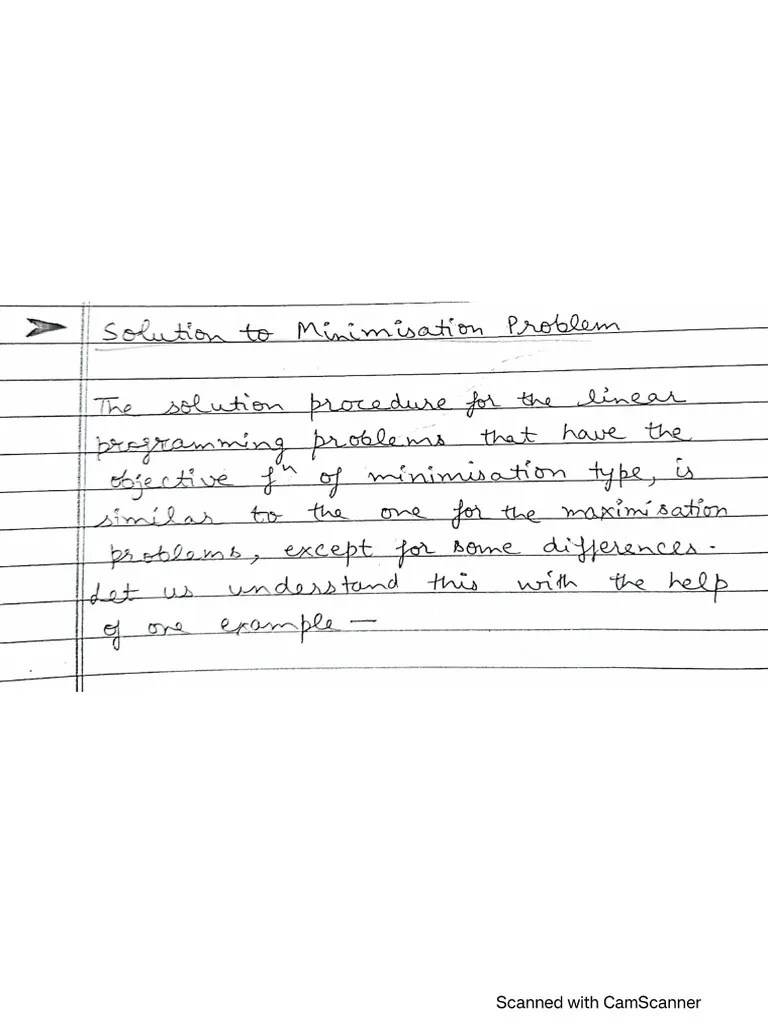 Solution to Minimisation Problem
The solution procedure for the linear
programming problems that have the
objective fⁿ of minimisation type, is
similar to the one for the maximisation
problems, except for some differences.
Let us understand this with the help
of one example —
Scanned with CamScanner